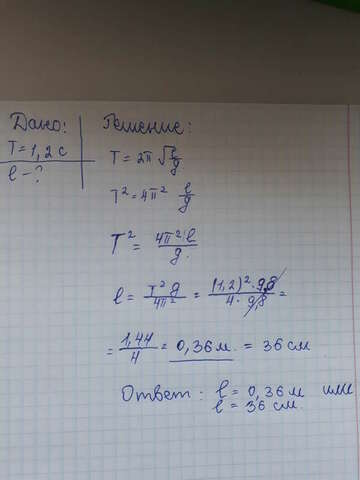 Дано:
T = 1,2 с
l - ?
Решение:
T = 2π √l/g
T² = 4π² l/g
T² = 4π² l/g.
l = T² g/4π² = (1,2)² · 9,8/4 · 9,8 =
= 1,44/4 = 0,36 м = 36 см
Ответ: l = 0,36 м или
l = 36 см.